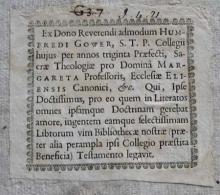 G 3.7 8.4.21
Ex Dono Reverendi admodum HUM-
FREDI GOWER, S. T. P. Collegii
hujus per annos triginta Præfecti, Sa-
cræ Theologiæ pro Dominâ MAR-
GARETA Professoris, Ecclesiæ ELI-
ENSIS Canonici, &c. Qui, Ipse
Doctissimus, pro eo quem in Literatos
omnes ipsamque Doctrinam gerebat
amore, ingentem eamque selectissimam
Librorum vim Bibliothecæ nostræ præ-
ter alia perampla ipsi Collegio præstita
Beneficia) Testamento legavit.